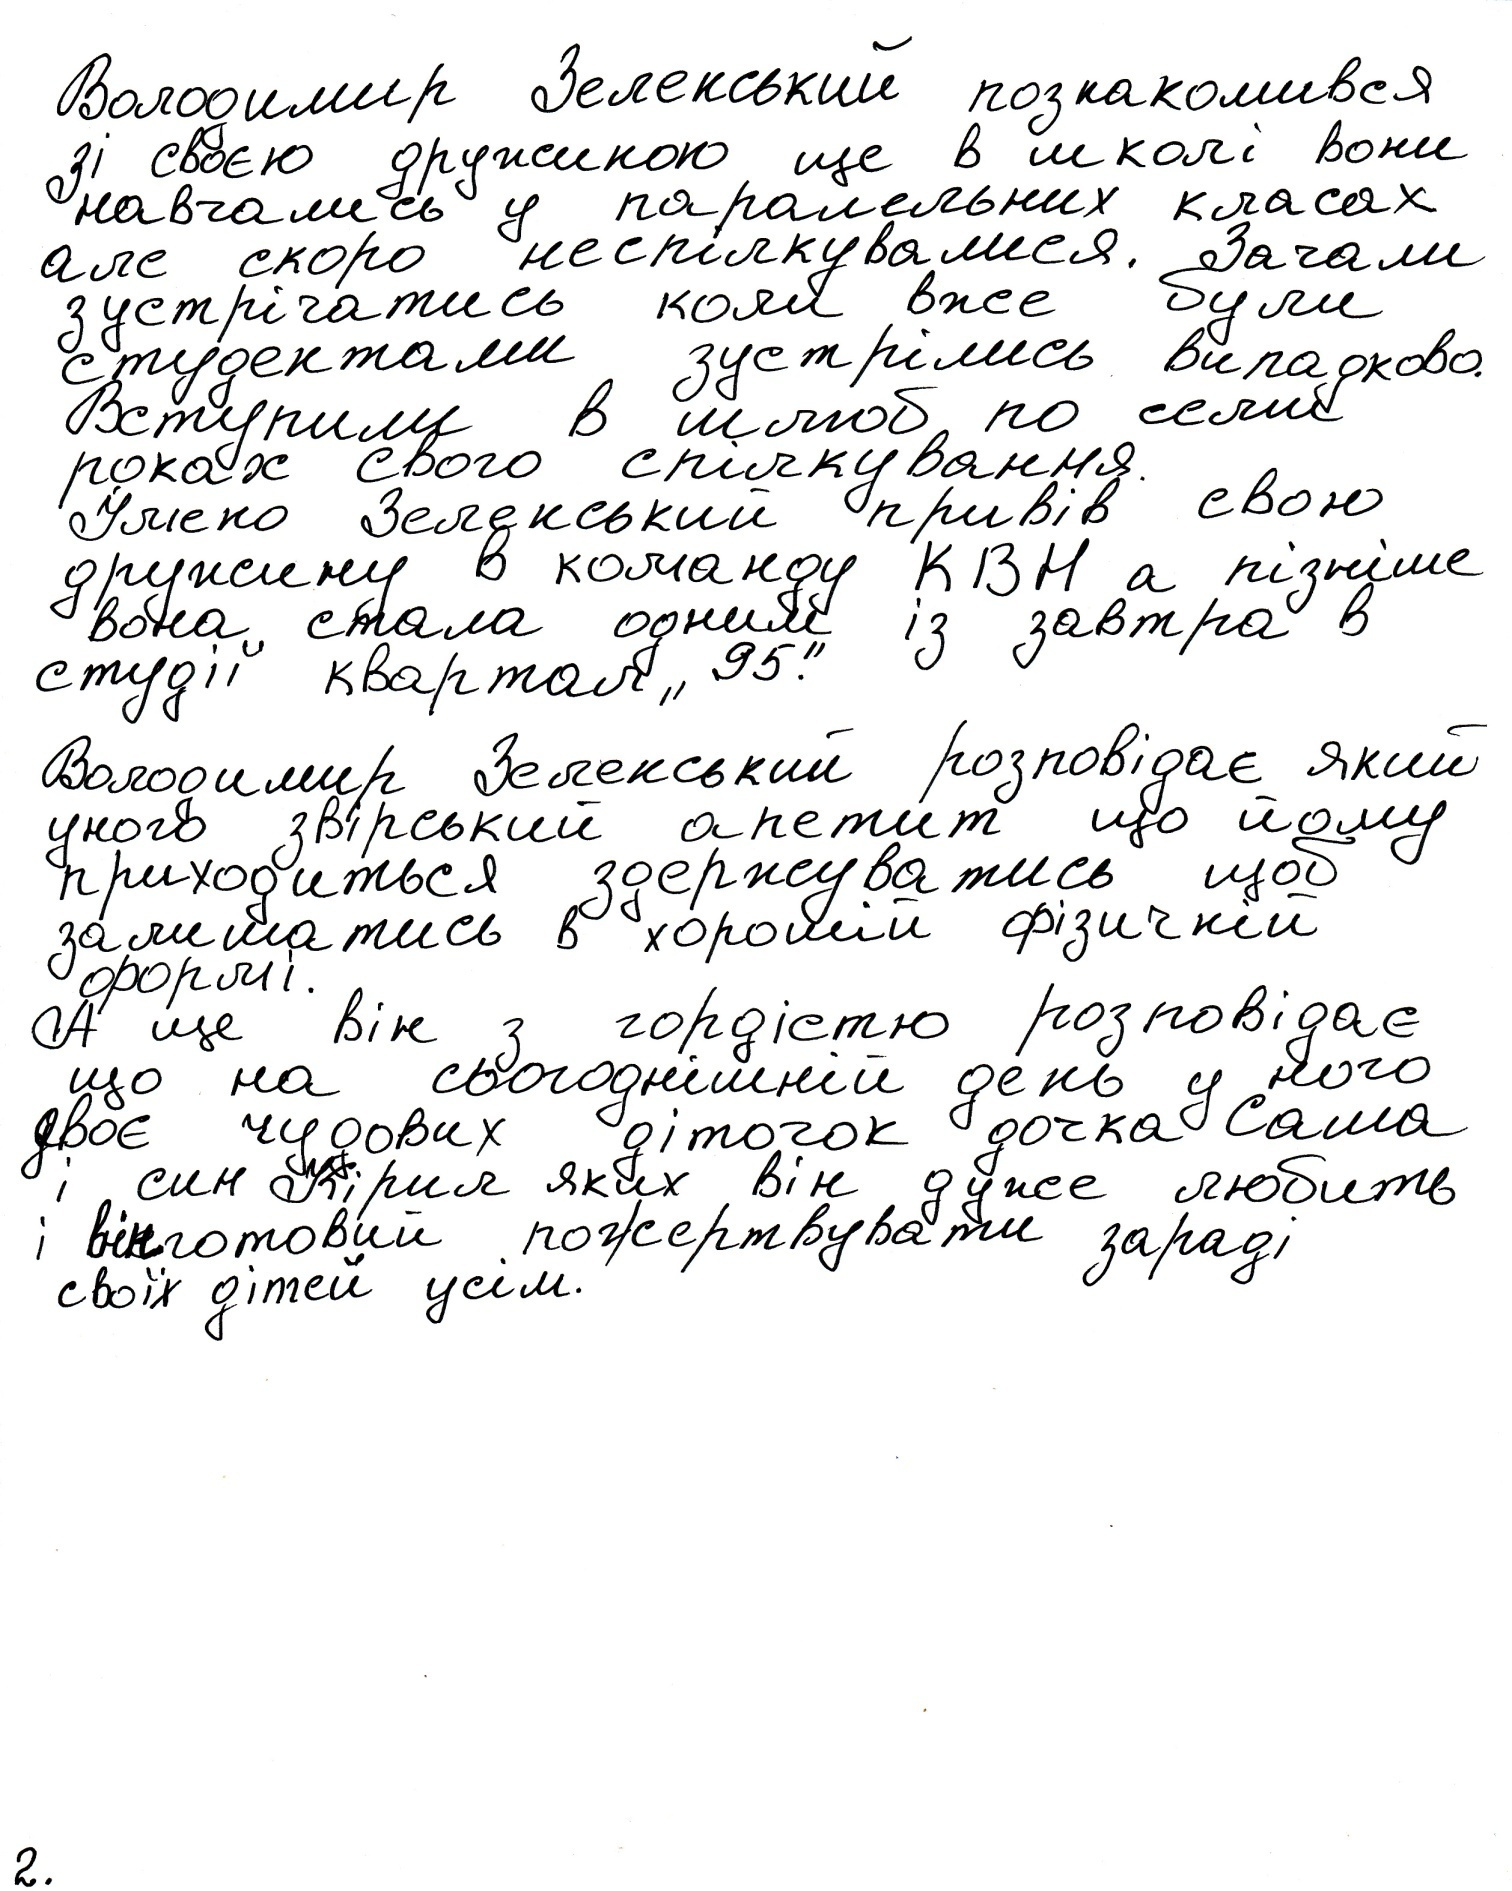 Володимир Зеленський познакомився
зі своєю дружиною ще в школі вони
навчались у паралельних класах
але скоро неспілкувалися. Зачали
зустрічатись коли вже були
студентами зустрілись випадково.
Вступили в шлюб по семи
роках свого спілкування.
Зеленський привів свою
дружину в команду КВН а пізніше
вона стала одним із завтра в
студії квартал „95".
Володимир Зеленський розповідає який
уного звірський апетит що йому
приходиться здержуватись щоб
залишатись в хорошій фізичній
формі.
А ще він з гордістю розповідає
що на сьогоднішній день у ного
двоє чудових діточок дочка Саша
і син Кірил яких він дуже любить
і він готовий пожертвувати зараді
своїх дітей усім.
2.